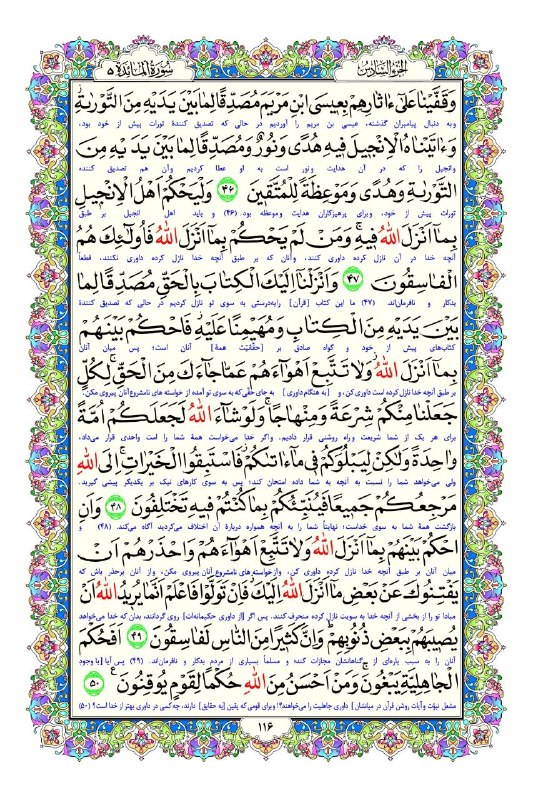 الجزء السادس
سورة المائدة ٥
وَقَفَّيْنَا عَلَىٰ ءَاثَارِهِمْ بِعِيسَى ابْنِ مَرْيَمَ مُصَدِّقًا لِمَا بَيْنَ يَدَيْهِ مِنَ التَّوْرَيٰةِ
وبه دنبال پیامبران گذشته، عیسی بن مریم را آوردیم در حالی که تصدیق کنندهٔ تورات پیش از خود بود.
وَءَاتَيْنَاهُ الْإِنْجِيلَ فِيهِ هُدًى وَنُورٌ وَمُصَدِّقًا لِمَا بَيْنَ يَدَيْهِ مِنَ
وانجیل را که در آن هدایت ونور است به او عطا کردیم وآن هم تصدیق کننده
التَّوْرَيٰةِ وَهُدًى وَمَوْعِظَةً لِلْمُتَّقِينَ ﴿٤٦﴾ وَلْيَحْكُمْ أَهْلُ الْإِنْجِيلِ
تورات پیش از خود، وبرای پرهیزکاران هدایت وموعظه بود. (۴۶) و باید اهل انجیل بر طبق
بِمَا أَنْزَلَ اللهُ فِيهِ وَمَنْ لَمْ يَحْكُمْ بِمَا أَنْزَلَ اللهُ فَأُولَٰئِكَ هُمُ
آنچه خدا در آن نازل کرده داوری کنند، وآنان که بر طبق آنچه خدا نازل کرده داوری نکنند، قطعاً
الْفَاسِقُونَ ﴿٤٧﴾ وَأَنْزَلْنَا إِلَيْكَ الْكِتَابَ بِالْحَقِّ مُصَدِّقًا لِمَا
بدکار و نافرمان‌اند. (۴۷) ما این کتاب [قرآن] رابه‌درستی به سوی تو نازل کردیم در حالی که تصدیق کنندهٔ
بَيْنَ يَدَيْهِ مِنَ الْكِتَابِ وَمُهَيْمِنًا عَلَيْهِ فَاحْكُمْ بَيْنَهُمْ
کتاب‌های پیش از خود و گواه صادق بر [حقّانیّت همهٔ] آنان است؛ پس میان آنان
بِمَا أَنْزَلَ اللهُ وَلَا تَتَّبِعْ أَهْوَاءَهُمْ عَمَّا جَاءَكَ مِنَ الْحَقِّ لِكُلٍّ
بر طبق آنچه خدا نازل کرده است داوری کن، و [به هنگام داوری] به جای حقّی که به سوی تو آمده از خواسته های نامشروع آنان پیروی مکن.
جَعَلْنَا مِنْكُمْ شِرْعَةً وَمِنْهَاجًا وَلَوْ شَاءَ اللهُ لَجَعَلَكُمْ أُمَّةً
برای هر یک از شما شریعت و راه روشنی قرار دادیم. واگر خدا می‌خواست همهٔ شما را امت واحدی قرار می‌داد،
وَاحِدَةً وَلَٰكِنْ لِيَبْلُوَكُمْ فِي مَا ءَاتَىٰكُمْ فَاسْتَبِقُوا الْخَيْرَاتِ إِلَى اللهِ
ولی می‌خواهد شما را نسبت به آنچه به شما داده امتحان کند؛ پس به سوی کارهای نیک بر یکدیگر پیشی گیرید.
مَرْجِعُكُمْ جَمِيعًا فَيُنَبِّئُكُمْ بِمَا كُنْتُمْ فِيهِ تَخْتَلِفُونَ ﴿٤٨﴾ وَأَنِ
بازگشت همهٔ شما به سوی خداست؛ نهایتاً شما را به آنچه همواره دربارهٔ آن اختلاف می‌کردید آگاه می‌کند. (۴۸) و
احْكُمْ بَيْنَهُمْ بِمَا أَنْزَلَ اللهُ وَلَا تَتَّبِعْ أَهْوَاءَهُمْ وَاحْذَرْهُمْ أَنْ
میان آنان بر طبق آنچه خدا نازل کرده داوری کن، و از خواسته های نامشروع آنان پیروی مکن، و از آنان برحذر باش که
يَفْتِنُوكَ عَنْ بَعْضِ مَا أَنْزَلَ اللهُ إِلَيْكَ فَإِنْ تَوَلَّوْا فَاعْلَمْ أَنَّمَا يُرِيدُ اللهُ أَنْ
مبادا تو را از بخشی از آنچه خدا به سویت نازل کرده منحرف کنند. پس اگر [از داوری حکیمانه‌ات] روی گرداندند، بدان که خدا می‌خواهد
يُصِيبَهُمْ بِبَعْضِ ذُنُوبِهِمْ وَإِنَّ كَثِيرًا مِنَ النَّاسِ لَفَاسِقُونَ ﴿٤٩﴾ أَفَحُكْمَ
آنان را به سبب پاره‌ای از گناهانشان مجازات کند؛ و مسلماً بسیاری از مردم بدکار و نافرمان‌اند. (۴۹) پس آیا [با وجود
الْجَاهِلِيَّةِ يَبْغُونَ وَمَنْ أَحْسَنُ مِنَ اللهِ حُكْمًا لِقَوْمٍ يُوقِنُونَ ﴿٥٠﴾
مشعل نبوّت و آیات روشن قرآن در میانشان] داوری جاهلیت را می‌خواهند؟! و برای قومی که یقین [به حقایق] دارند، چه کسی در داوری بهتر از خدا است؟ (۵۰)
۱۱۶